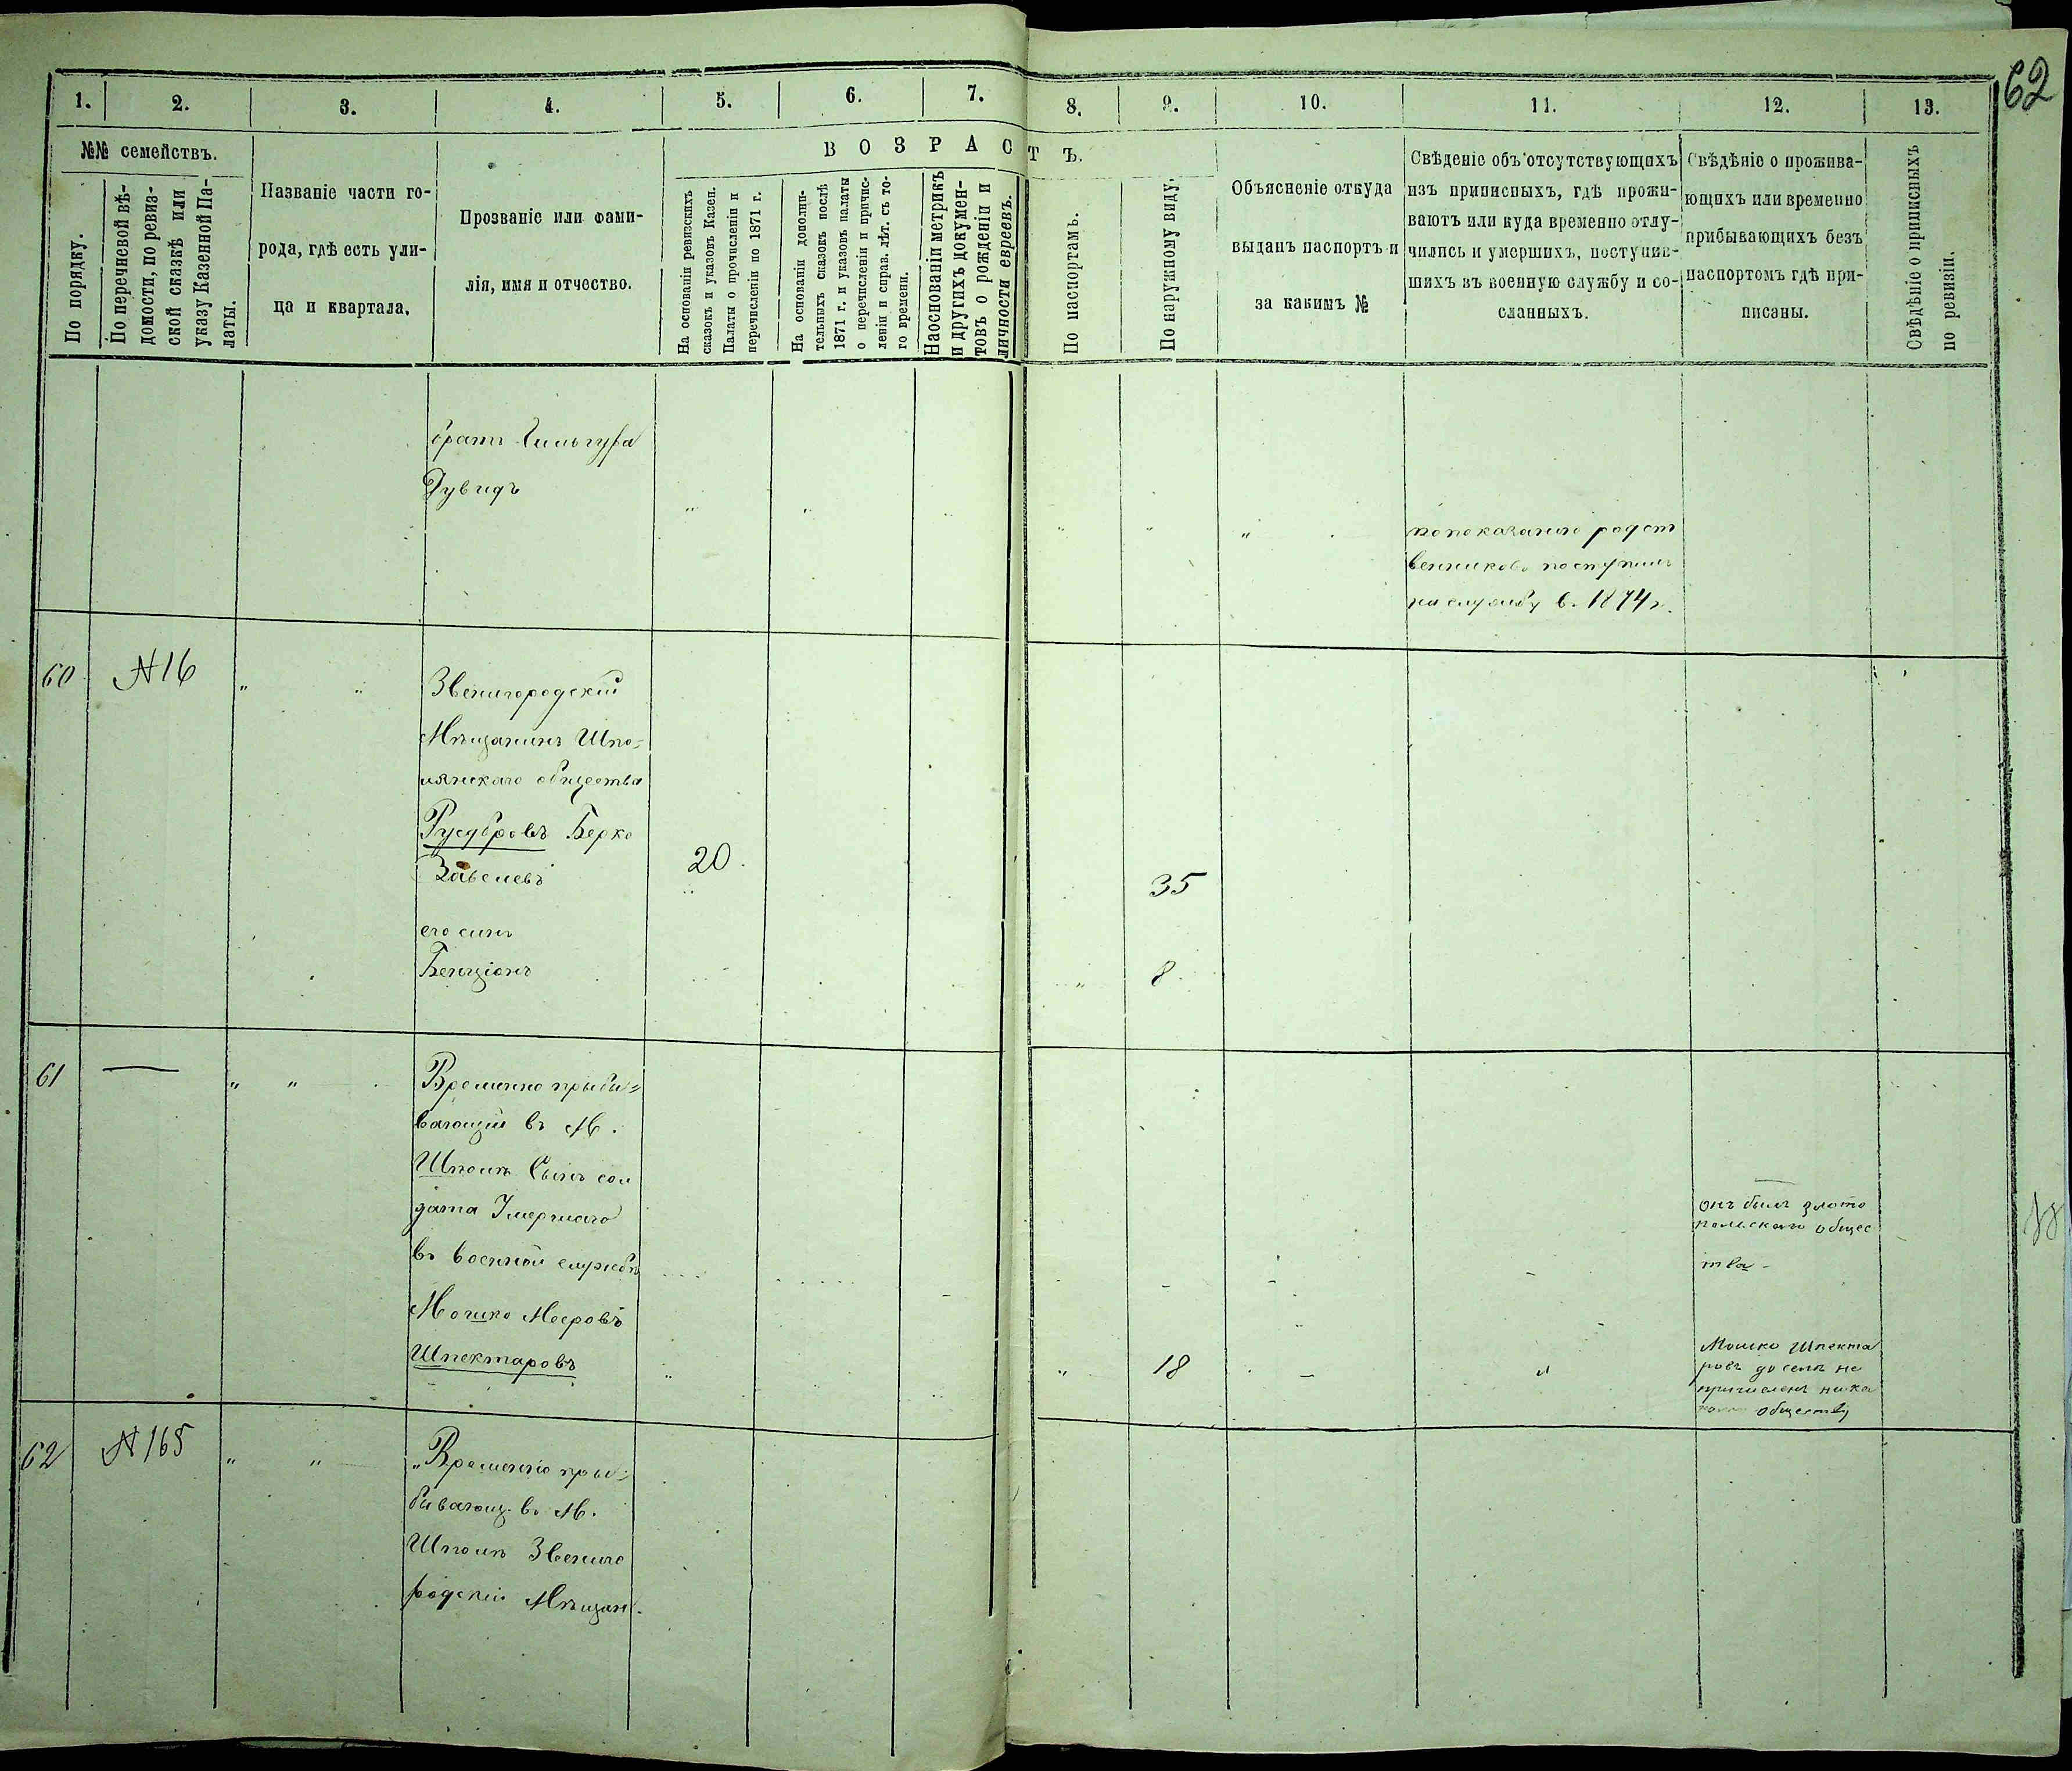 62
1. 2. 3. 4. 5. 6. 7. 8. 9. 10. 11. 12. 13.
№№ семействъ.
По порядку.
По перечневой вѣ-
домости, по ревиз-
ской сказкѣ или
указу Казенной Па-
латы.
Названіе части го-
рода, гдѣ есть ули-
ца и квартала.
Прозваніе или фами-
лія, имя и отчество.
ВОЗРАСТЪ.
На основаніи ревизскихъ
сказокъ и указовъ Казен.
Палаты о причисленіи и
перечисленіи по 1871 г.
На основаніи дополни-
тельныхъ сказокъ послѣ
1871 г. и указовъ палаты
о перечисленіи и причис-
леніи и справ. лѣт. съ то-
го времени.
На основаніи метрикъ
и другихъ докумен-
товъ о рожденіи и
личности евреевъ.
По паспортамъ.
По наружному виду.
Объясненіе откуда
выданъ паспортъ и
за какимъ №
Свѣденіе объ отсутствующихъ
изъ приписныхъ, гдѣ прожи-
ваютъ или куда временно отлу-
чились и умершихъ, поступив-
шихъ въ военную службу и со-
сланныхъ.
Свѣдѣніе о прожива-
ющихъ или временно
прибывающихъ безъ
паспортомъ гдѣ при-
писаны.
Свѣдѣніе о приписныхъ
по ревизіи.
братъ
Дувидъ
" " " " "
по показанію родст
венниковъ поступилъ
на службу в. 1874 г.
60 №16 " "
Звенигородскій
Мѣщанинъ Шпо=
лянскаго общества
Русдбровъ Берко
Завелевъ 20 35
его сынъ
Бенціонъ " 8
61 — " "
Временно прибы=
вающій въ М.
Шполѣ Сынъ сол
дата Умершаго
въ военной службѣ
Мошко Мееровъ
Шпекторовъ " 18 — "
онъ былъ злото
польскаго общес
тва -
Мошко Шпекта
ровъ до селѣ не
причисленъ ника
обществу
62 №165 " "
"Временно при=
бывающ. въ М.
Шполѣ Звениго
родскій Мѣщан.